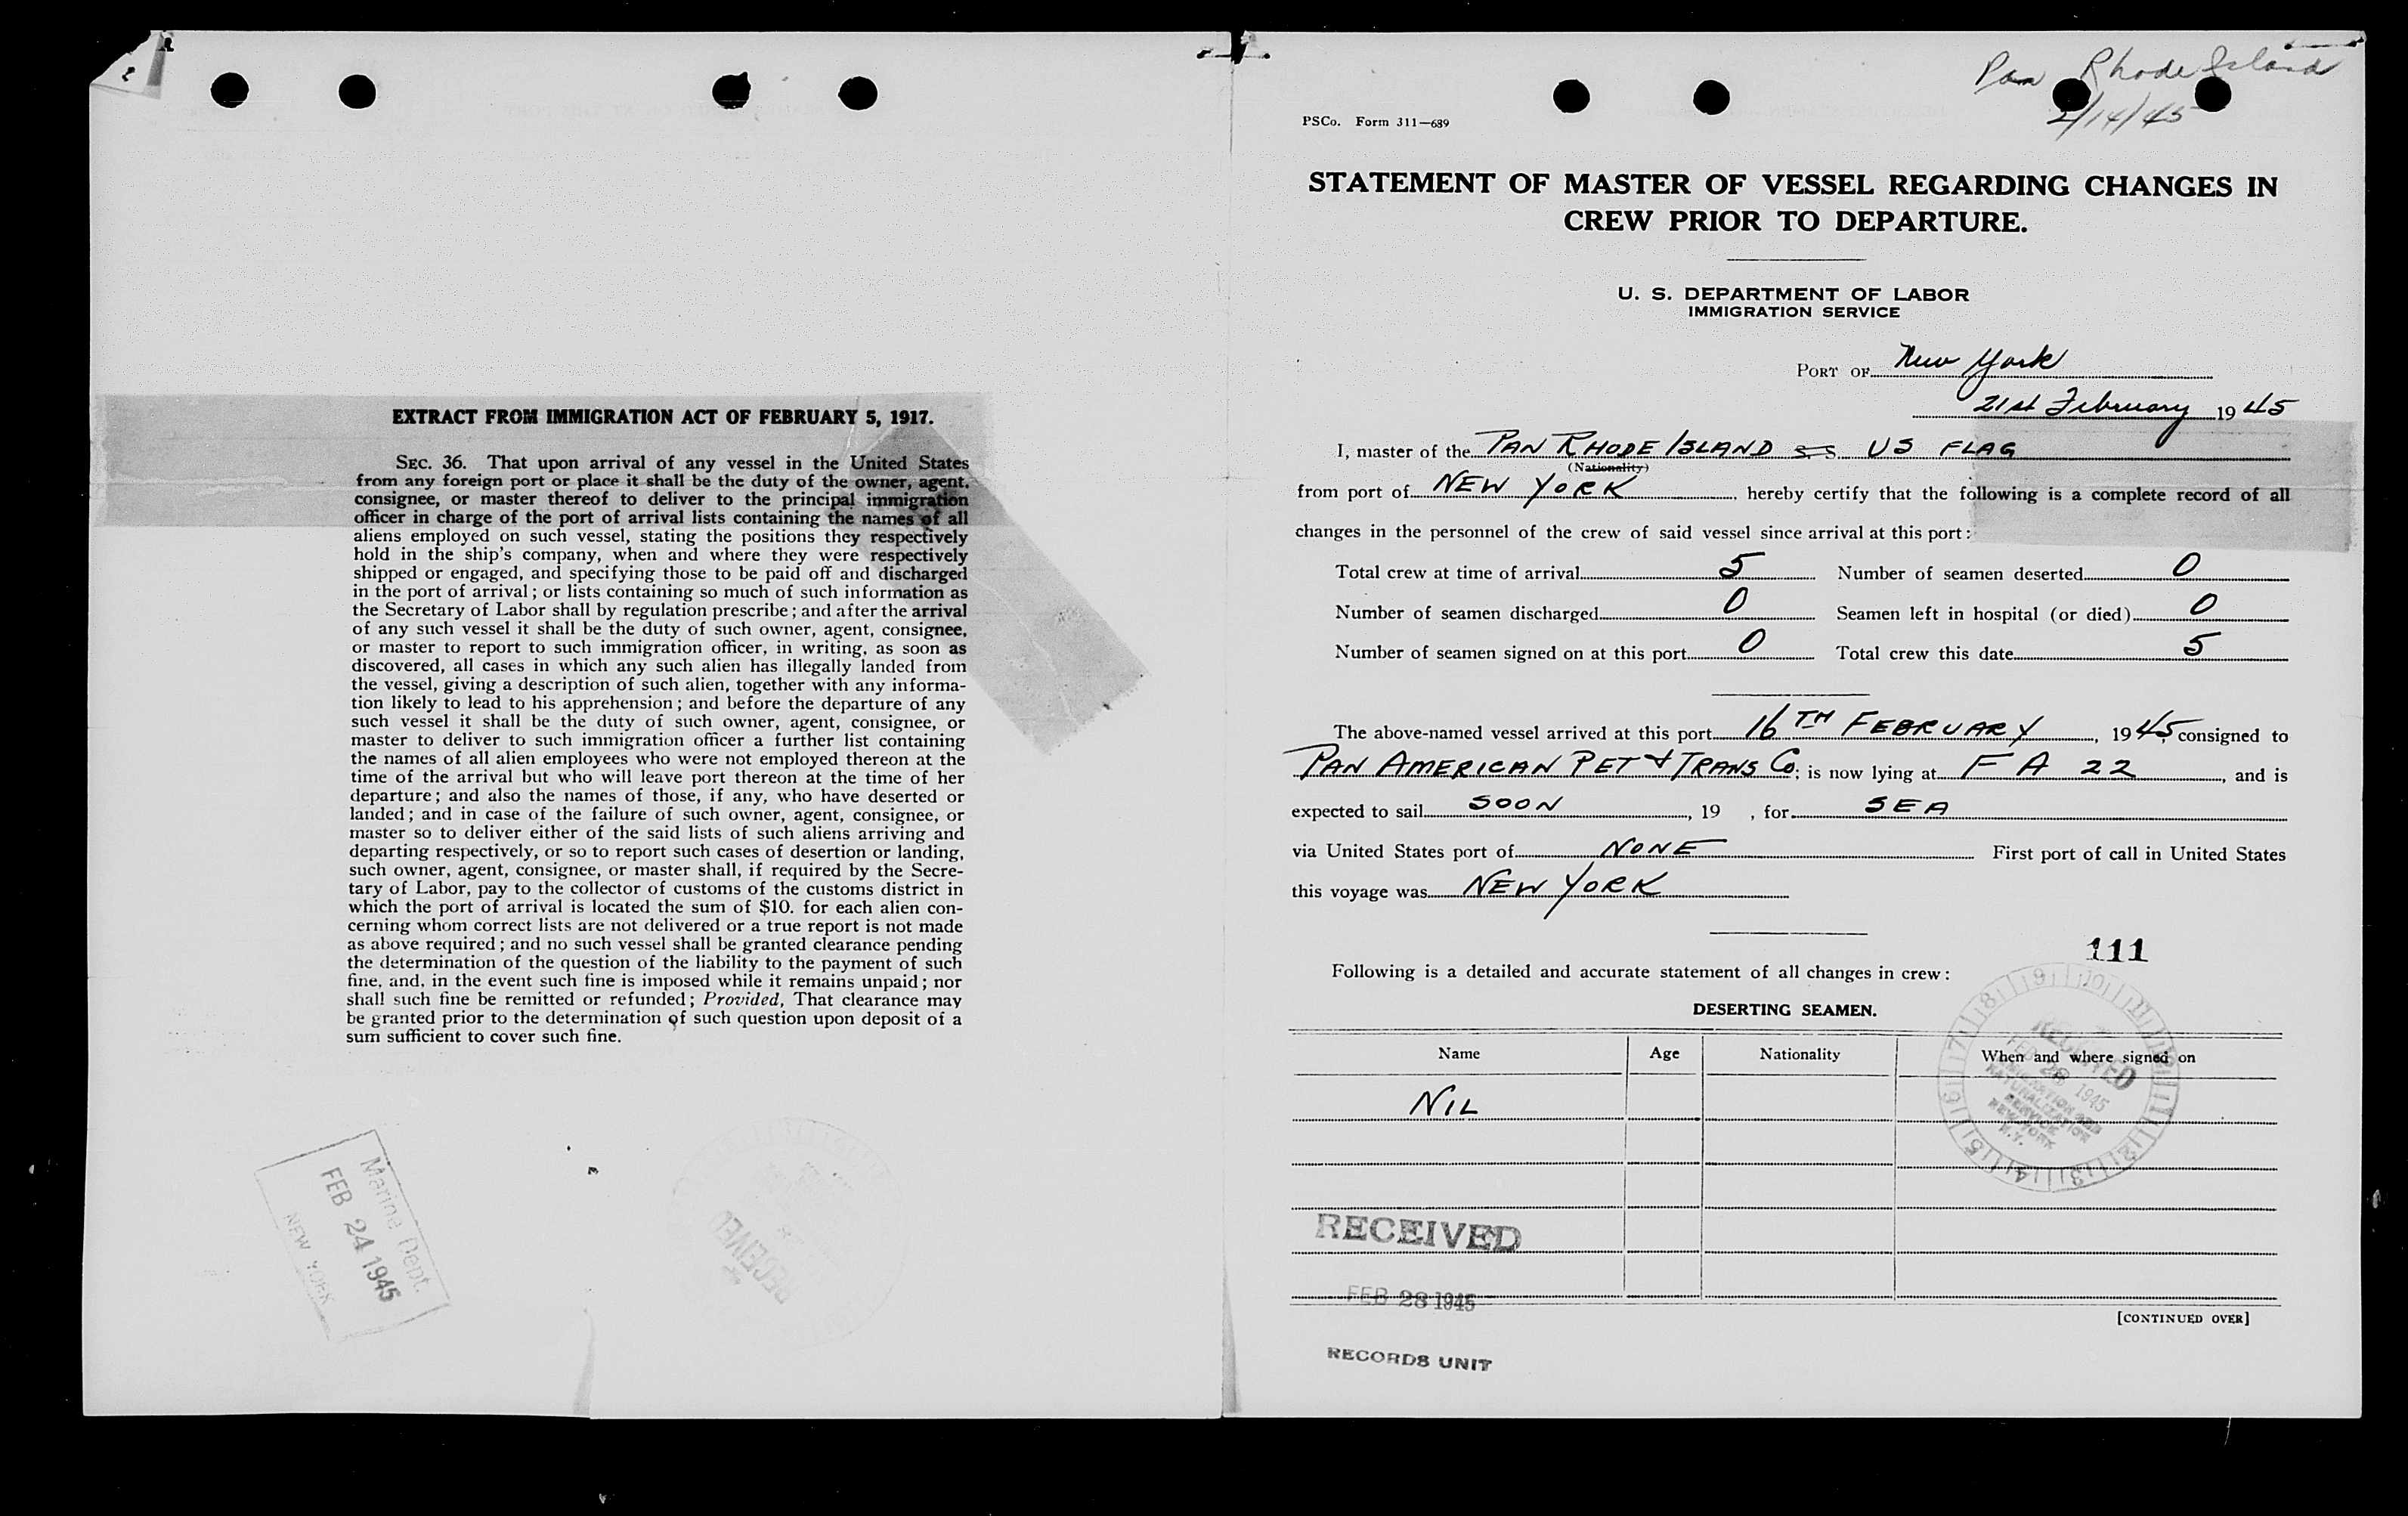 EXTRACT FROM IMMIGRATION ACT OF FEBRUARY 5, 1917.
SEC. 36. That upon arrival of any vessel in the United States
from any foreign port or place it shall be the duty of the owner, agent,
consignee, or master thereof to deliver to the principal immigration
officer in charge of the port of arrival lists containing the names of all
aliens employed on such vessel, stating the positions they respectively
hold in the ship's company, when and where they were respectively
shipped or engaged, and specifying those to be paid off and discharged
in the port of arrival; or lists containing so much of such information as
the Secretary of Labor shall by regulation prescribe; and after the arrival
of any such vessel it shall be the duty of such owner, agent, consignee,
or master to report to such immigration officer, in writing, as soon as
discovered, all cases in which any such alien has illegally landed from
the vessel, giving a description of such alien, together with any informa-
tion likely to lead to his apprehension; and before the departure of any
such vessel it shall be the duty of such owner, agent, consignee, or
master to deliver to such immigration officer a further list containing
the names of all alien employees who were not employed thereon at the
time of the arrival but who will leave port thereon at the time of her
departure; and also the names of those, if any, who have deserted or
landed; and in case of the failure of such owner, agent, consignee, or
master so to deliver either of the said lists of such aliens arriving and
departing respectively, or so to report such cases of desertion or landing,
such owner, agent, consignee, or master shall, if required by the Secre-
tary of Labor, pay to the collector of customs of the customs district in
which the port of arrival is located the sum of $10. for each alien con-
cerning whom correct lists are not delivered or a true report is not made
as above required; and no such vessel shall be granted clearance pending
the determination of the question of the liability to the payment of such
fine, and, in the event such fine is imposed while it remains unpaid; nor
shall such fine be remitted or refunded; Provided, That clearance may
be granted prior to the determination of such question upon deposit of a
sum sufficient to cover such fine.
Marine Dept.
FEB 24 1945
NEW YORK
RECEIVED
Pan Rhode Island
2/14/45
PSCo. Form 311—689
STATEMENT OF MASTER OF VESSEL REGARDING CHANGES IN
CREW PRIOR TO DEPARTURE.
U. S. DEPARTMENT OF LABOR
IMMIGRATION SERVICE
PORT OF New York
21st February 1945
I, master of the PAN RHODE ISLAND SS US FLAG
(Nationality)
from port of NEW YORK, hereby certify that the following is a complete record of all
changes in the personnel of the crew of said vessel since arrival at this port:
Total crew at time of arrival 5 Number of seamen deserted 0
Number of seamen discharged 0 Seamen left in hospital (or died) 0
Number of seamen signed on at this port 0 Total crew this date 5
The above-named vessel arrived at this port 16TH FEBRUARY, 1945 consigned to
PAN AMERICAN PET & TRANS Co; is now lying at F A 22, and is
expected to sail SOON, 19 , for SEA
via United States port of NONE First port of call in United States
this voyage was NEW YORK
111
Following is a detailed and accurate statement of all changes in crew:
DESERTING SEAMEN.
Name Age Nationality When and where signed on
NIL
RECEIVED
FEB 28 1945
IMMIGRATION AND
NATURALIZATION
SERVICE
NEW YORK
N.Y.
RECEIVED
FEB 28 1945
RECORDS UNIT
[CONTINUED OVER]